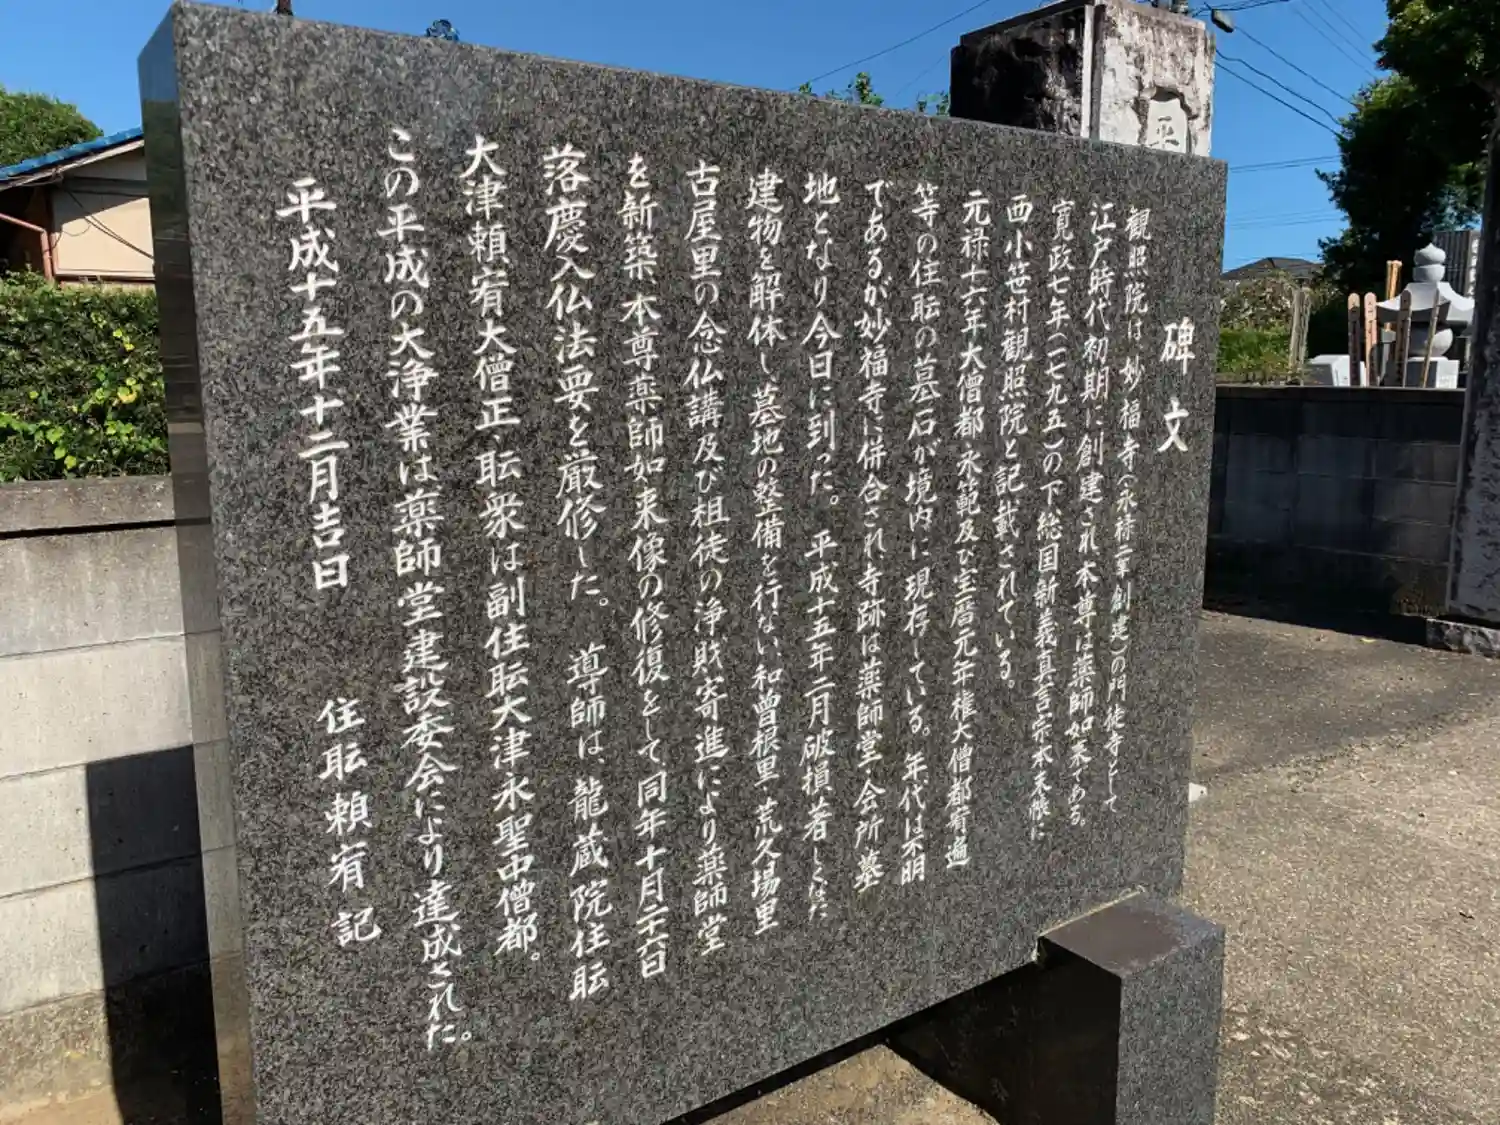 碑文
観照院は妙福寺(永禄二年創建)の門徒寺として
江戸時代初期に創建され本尊は薬師如来である。
寛政七年(一七九五)の下、総国新義真言宗本末帳に
西小笹村観照院と記載されている。
元禄十六年大僧都永範及び宝暦元年権大僧都宥遍
等の住転の墓石が境内に現存している。年代は不明
であるが妙福寺に併合され寺跡は薬師堂・会所・墓
地となり今日に到った。平成十五年二月破損著しくなた
建物を解体し、墓地の整備を行ない、和曽根里・荒久場里
古屋里の念仏講及び祖徒の浄財寄進により薬師堂
を新築、本尊薬師如来像の修復をして、同年十月二十六日
落慶入仏法要を厳修した。導師は、龍蔵院住転
大津頼宥大僧正、転衆は副住転大津永聖中僧都。
この平成の大浄業は薬師堂建設委員会により達成された。
平成十五年十二月吉日
住転頼宥記
平